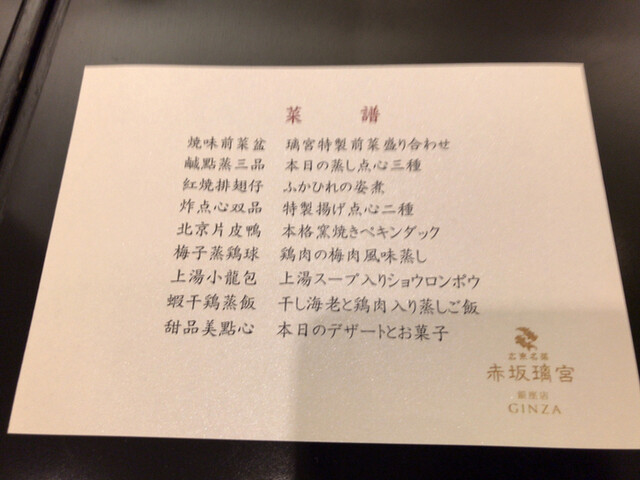 菜譜
焼味前菜盆 璃宮特製前菜盛り合わせ
鹹點蒸三品 本日の蒸し点心三種
紅焼排翅仔 ふかひれの姿煮
炸点心双品 特製揚げ点心二種
北京片皮鴨 本格窯焼きペキンダック
梅子蒸鶏球 鶏肉の梅肉風味蒸し
上湯小龍包 上湯スープ入りショウロンポウ
蝦干鶏蒸飯 干し海老と鶏肉入り蒸しご飯
甜品美點心 本日のデザートとお菓子
広東名菜
赤坂璃宮
銀座店
GINZA